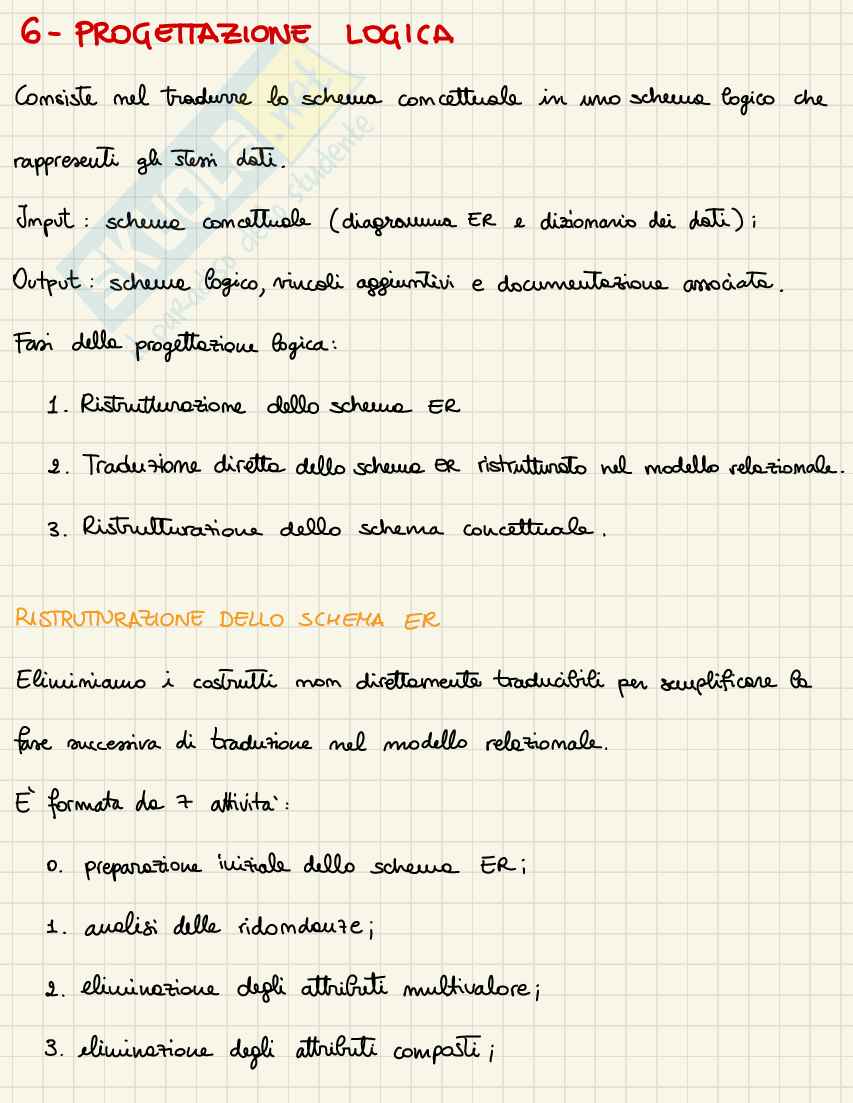 6 - PROGETTAZIONE LOGICA
Consiste nel tradurre lo schema concettuale in uno schema logico che
rappresenti gli stessi dati.
Input: schema concettuale (diagramma ER e dizionario dei dati);
Output: schema logico, vincoli aggiuntivi e documentazione associata.
Fasi della progettazione logica:
1. Ristrutturazione dello schema ER
2. Traduzione diretta dello schema ER ristrutturato nel modello relazionale.
3. Ristrutturazione dello schema concettuale.
RISTRUTTURAZIONE DELLO SCHEMA ER
Eliminiamo i costrutti non direttamente traducibili per semplificare la
fase successiva di traduzione nel modello relazionale.
È formata da 7 attività:
0. preparazione iniziale dello schema ER;
1. analisi delle ridondanze;
2. eliminazione degli attributi multivalore;
3. eliminazione degli attributi composti;
SKUOLA.net
il paradiso dello studente